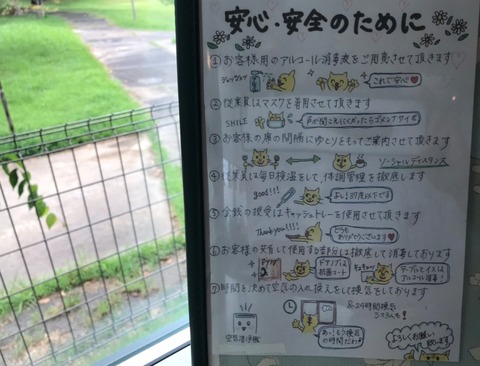 安心・安全のために
①お客様用のアルコール消毒液をご用意させて頂きます
これで安心
②従業員はマスクを着用させて頂きます
声が聞こえにくかったらゴメンナサイ
③お客様の席の間隔にゆとりをもってご案内させて頂きます
ソーシャルディスタンス
④従業員は毎日検温をして、体調管理を徹底します
good!!!
よし!37度以下です
⑤金銭の授受はキャッシュトレーを使用させて頂きます
Thank you!!!!
どうもありがとうございます
⑥お客様の
使用する部分は徹底して消毒しております
ドアノブは
抗菌コート
テーブルとイスは
アルコール消毒!
⑦時間を決めて空気の入れ換えをして換気をしております
空気清浄機
あっ!もう換気
の時間だわ!
24時間換気
システムも!
よろしくお願い
致します